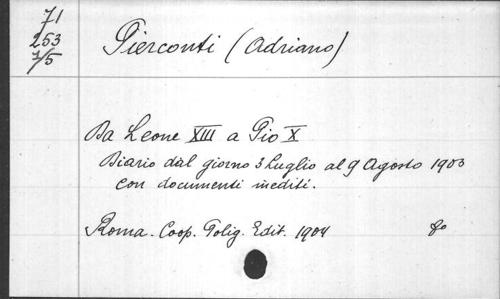 71
253
2/5
Pierconti (Adriano)
Da Leone XIII a Pio X
Diario dal giorno 3 Luglio al 9 Agosto 1903
con documenti inediti.
Roma. Coop. Polig. Edit. 1904 8o